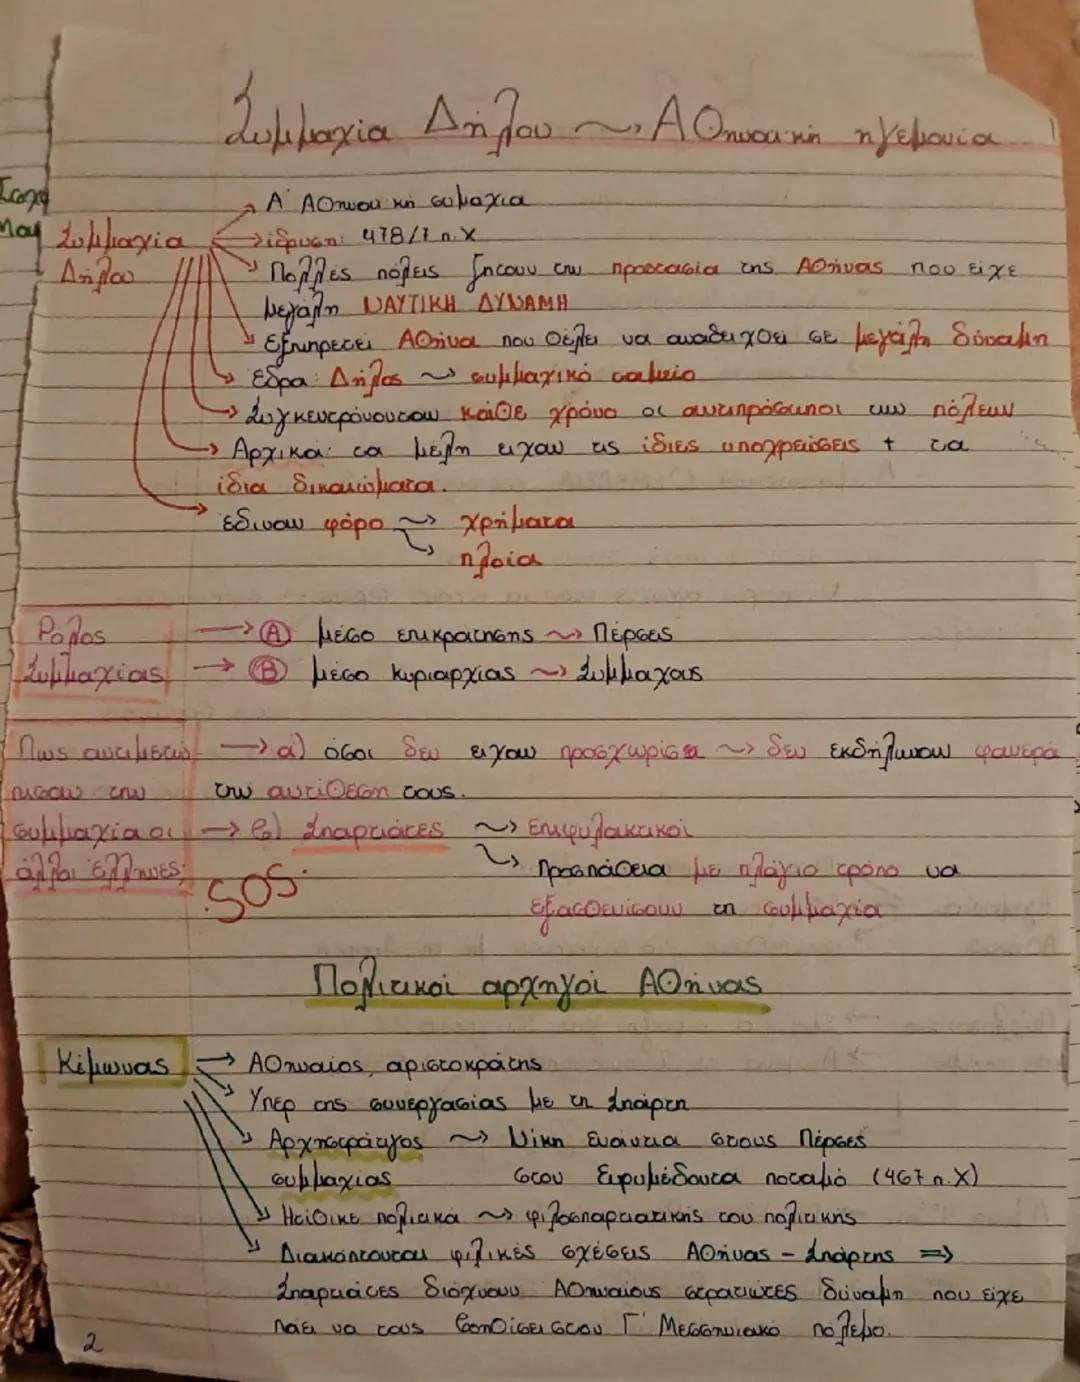 Συμμαχία Δήλου ~> Αθηναϊκή ηγεμονία
Συμμαχία Δήλου
Α' Αθηναϊκή συμαχία
ίδρυση: 478/7 π.Χ
Πολλές πόλεις ζητουν την προστασία της Αθήνας που είχε
μεγάλη ΝΑΥΤΙΚΗ ΔΥΝΑΜΗ
Εξηπρετεί Αθήνα που θέλει να αναδειχθεί σε μεγάλη δύναμη
Έδρα: Δήλος ~> συμμαχικό ταμείο
Συγκεντρώνονταν κάθε χρόνο οι αντιπρόσωποι των πόλεων
Αρχικά: τα μέλη ειχαν τις ίδιες υποχρεώσεις + τα
ίδια δικαιώματα.
έδιναν φόρο ~> χρήματα
πλοία
Ρόλος Συμμαχίας
→ Α μέσο επικράτησης ~> Πέρσες
→ Β μέσο κυριαρχίας ~> Συμμαχους
Πως αντιμετώπισαν την συμμαχία οι άλλοι Έλληνες;
→ α) όσοι δεν ειχαν προσχωρίσει ~> δεν εκδήλωναν φανερά
την αντίθεση τους.
→ β) Σπαρτιάτες ~> επιφυλακτικοί
Προσπάθεια με πλάγιο τρόπο να
εξασθενίσουν τη συμμαχία
SOS.
Πολιτικοί αρχηγοί Αθήνας
Κίμωνας → Αθηναίος, αριστοκράτης
Υπερ της συνεργασίας με τη Σπάρτη
Αρχηστράτηγος ~> Νίκη ενάντια στους Πέρσες
συμμαχίας στον Ευρυμέδοντα ποταμό (467 π.Χ)
Ηττίθικε πολιτικά ~> φιλοσπαρτιατικής του πολιτικής
Διακόπτονται φιλικές σχέσεις Αθήνας - Σπάρτης =>
Σπαρτιάτες διόχνουν Αθηναίους στρατιώτες δύναμη που είχε
πάει να τους βοηθίσει στον Γ' Μεσσηνιακό πόλεμο.
2